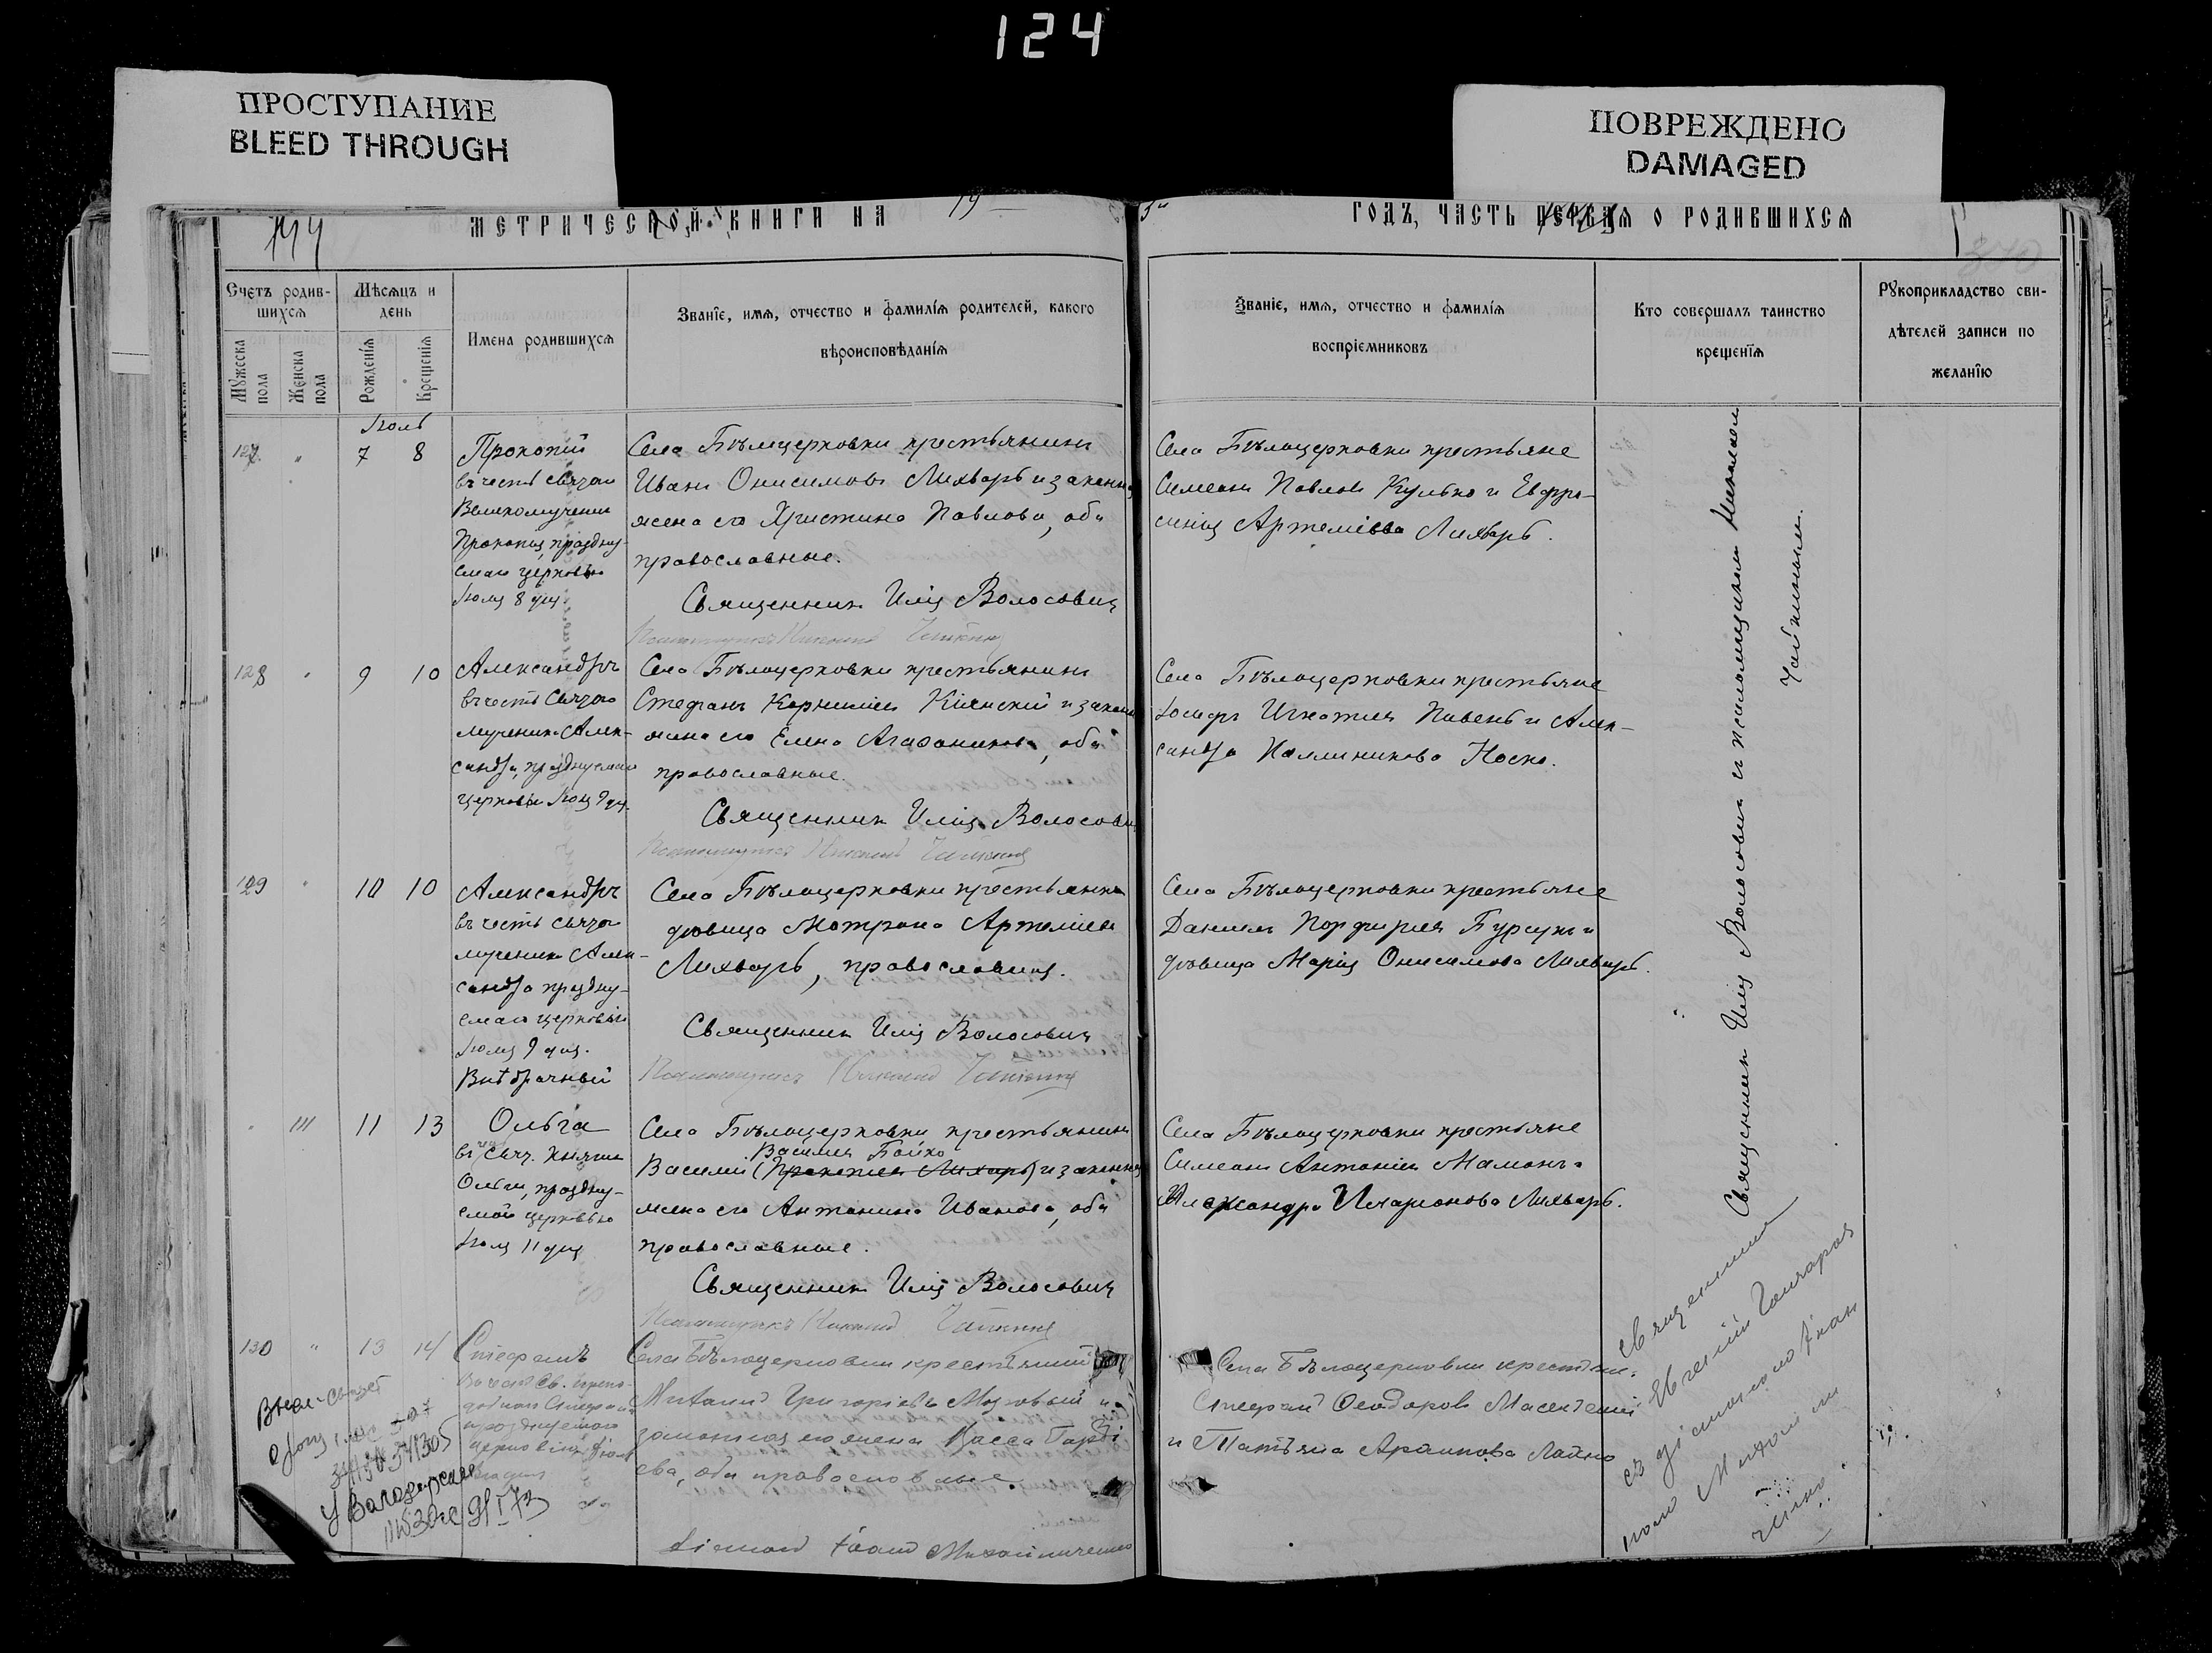 124
ПРОСТУПАНИЕ
BLEED THROUGH
ПОВРЕЖДЕНО
DAMAGED
МЕТРИЧЕСКОЙ КНИГИ НА 19
ГОДЪ, ЧАСТЬ ПЕРВАЯ О РОДИВШИХСЯ
Счетъ родив-
шихся
Мужеска пола
Женска пола
Мѣсяцъ и
день
Рожденія
Крещенія
Имена родившихся
Званіе, имя, отчество и фамилія родителей, какого
вѣроисповѣданія
Званіе, имя, отчество и фамилія
воспріемниковъ
Кто совершалъ таинство
крещенія
Рукоприкладство сви-
дѣтелей записи по
желанію
Іюль
127 " 7 8
Прокопій
въ честь святаго
Великомученика
Прокопія, праздну-
емаго церковью
Іюля 8 дня.
Села Бѣлоцерковки крестьянинъ
Иванъ Онисимовъ Лихварь и законная
жена его Христина Павлова, оба
православные.
Священникъ Илія Волосовичъ
Псаломщикъ Николай
Села Бѣлоцерковки крестьяне
Симеонъ Павловъ Кулько и Евфро-
синія Артеміева Лихварь.
128 " 9 10
Александръ
въ честь святаго
мученика Алек-
сандра, празднуемаго
церковью Іюля 9 дня.
Села Бѣлоцерковки крестьянинъ
Стефанъ Корниліевъ Кіянскій и законная
жена его Елена Агафоникова, оба
православные.
Священникъ Илія Волосовичъ
Псаломщикъ Николай
Села Бѣлоцерковки крестьяне
Іосифъ Игнатіевъ Пивень и Алек-
сандра Каллиникова Носко.
129 " 10 10
Александръ
въ честь святаго
мученика Алек-
сандра праздну-
емаго церковью
Іюля 9 дня.
Внѣбрачный
Села Бѣлоцерковки крестьянка
вдовица Мотрона Артеміева
Лихварь, православная.
Священникъ Илія Волосовичъ
Псаломщикъ Николай
Села Бѣлоцерковки крестьяне
Даніилъ Порфиріевъ Бурсукъ и
вдовица Марія Онисимова Лихварь.
" 111 11 13
Ольга
въ честь свят. княгини
Ольги, праздну-
емой церковью
Іюля 11 дня
Села Бѣлоцерковки крестьянинъ
Василіевъ Бойко
Василій (Прокопіевъ Лихварь) и законная
жена его Антонина Иванова, оба
православные.
Священникъ Илія Волосовичъ
Псаломщикъ Николай
Села Бѣлоцерковки крестьяне
Симеонъ Антоніевъ Мамонъ и
Александра Иларіонова Лихварь.
Священникъ Илія Волосовичъ и псаломщикомъ Николаемъ
130 " 13 14
Стефанъ
Села Бѣлоцерковки крестьянинъ
Григорьевъ Мозговый и
законная его жена Васса
ева, оба православные.
Діаконъ Іоаннъ Михайличенко
Села Бѣлоцерковки крестьяне
Стефанъ Феодоровъ
и Татьяна Лайко
Священникъ
Евгеній Гончаровъ
съ діакономъ Іоан
номъ Михайли
ченко